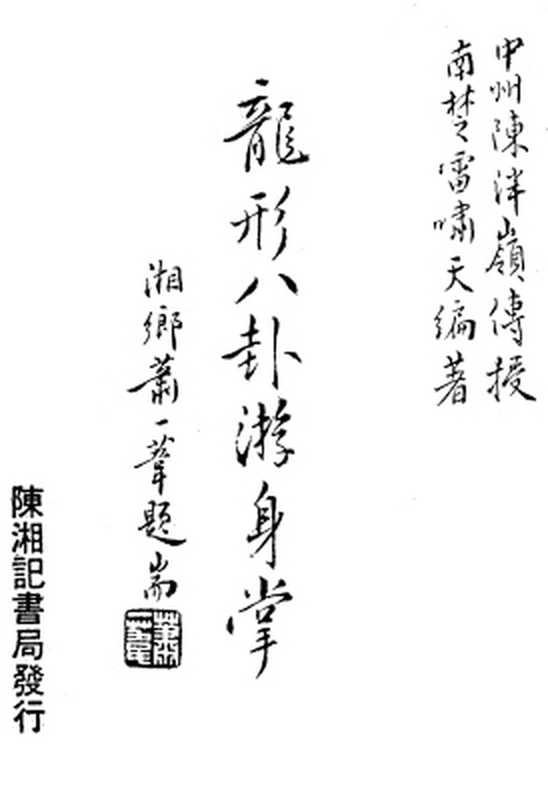 中州陳泮嶺傳授
南楚雷嘯天編著
龍形八卦游身掌
湘鄉蕭一葦題耑
陳湘記書局發行